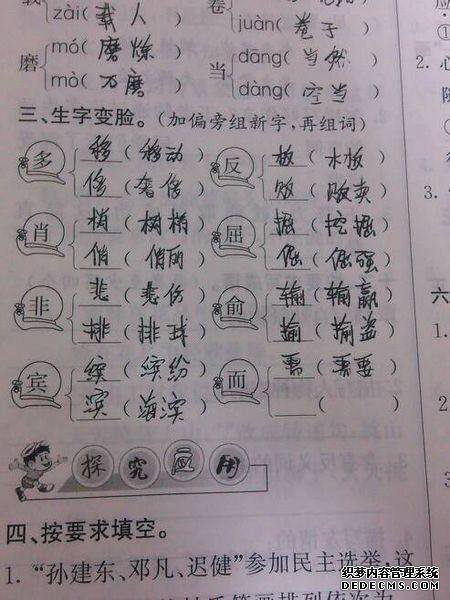 zài(载人) 卷
磨 mó(磨炼) juàn(卷子)
mò(石磨) 当 dāng(当然)
dàng(空当)
三、生字变脸。(加偏旁组新字,再组词)
多 移(移动) 反 板(木板)
侈(奢侈) 贩(贩卖)
肖 梢(树梢) 屈 掘(挖掘)
俏(俏丽) 倔(倔强)
非 悲(悲伤) 俞 输(输赢)
排(排球) 揄(揄盗)
宾 缤(缤纷) 而 需(需要)
滨(海滨) ( )
探究应用
四、按要求填空。
1.“孙建东、邓凡、迟健”参加民主选举,这
2.
3.
六
1.
2
内容管理系统
www.dedecms.com